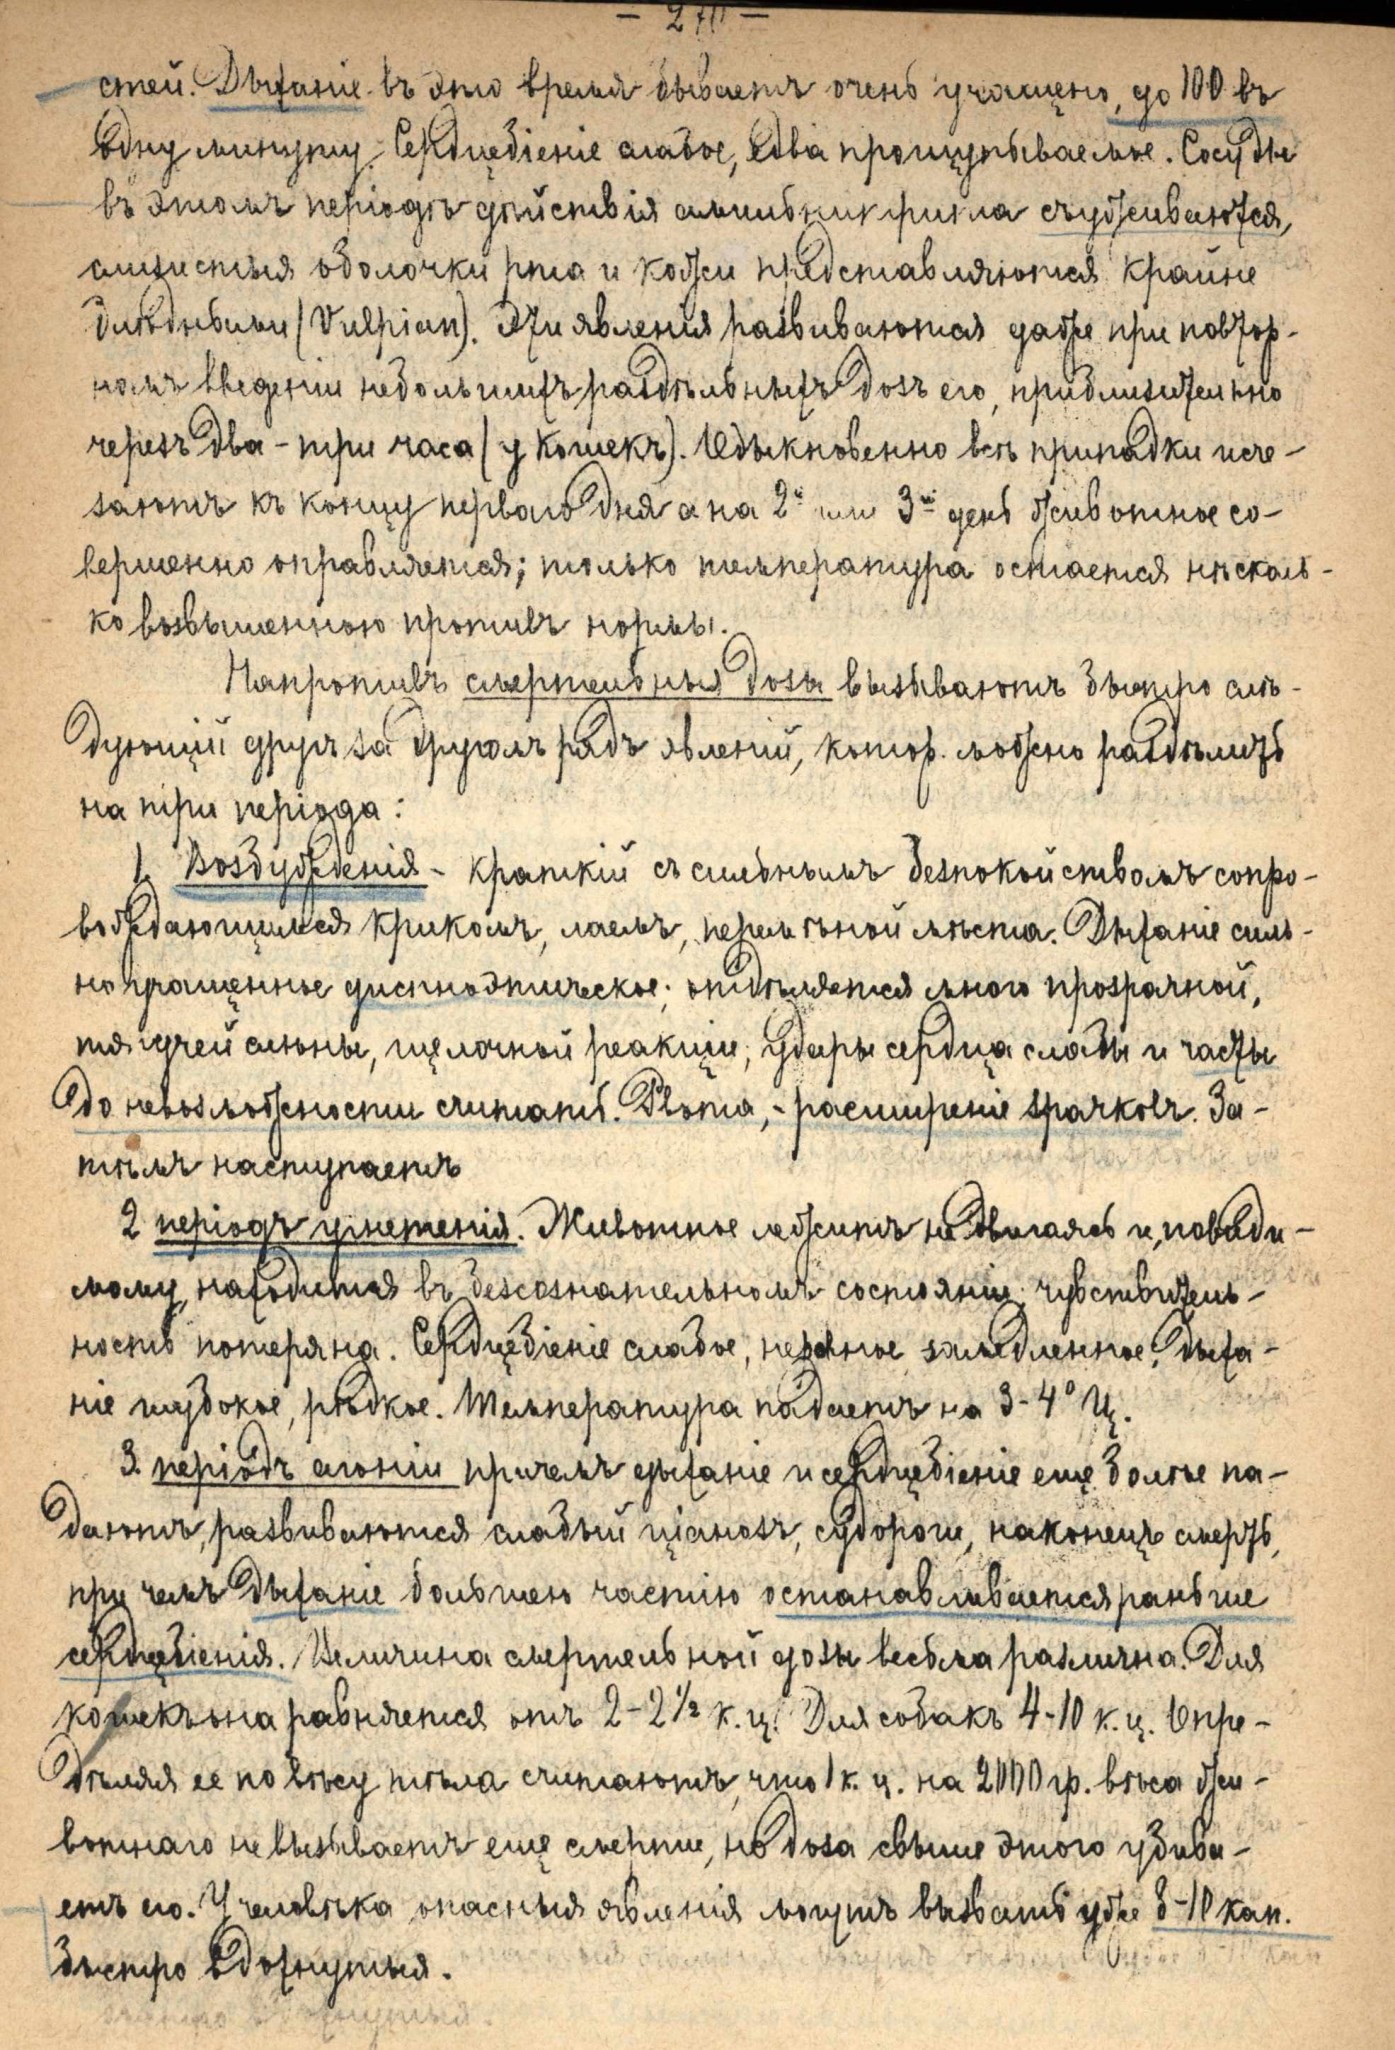 стей. Дыханіе въ это время бываетъ очень учащено, до 100 въ
одну минуту. Сердцебіеніе слабое, едва прощупываемое. Сосуды
въ этомъ періодѣ дѣйствія амилнитрита съуживаются,
слизистыя оболочки рта и кожи представляются крайне
блѣдными (Vulpian). Эти явленія развиваются даже при повтор-
номъ введеніи небольшихъ раздѣльныхъ дозъ его, приблизительно
черезъ два-три часа (у кошекъ). Обыкновенно всѣ припадки исче-
заютъ къ концу перваго дня а на 2й или 3й день животное со-
вершенно оправляется; только температура остается нѣсколь-
ко возвышенною противъ нормы.
Напротивъ смертельныя дозы вызываютъ быстро слѣ-
дующій другъ за другомъ рядъ явленій, котор. можно раздѣлить
на три періода:
1. Возбужденія - краткій съ сильнымъ безпокойствомъ сопро-
вождающимся крикомъ, лаемъ, перемѣной мѣста. Дыханіе силь-
но учащенное диспноэтическое; отдѣляется много прозрачной,
тягучей слюны, щелочной реакціи; удары сердца слабы и часты
до невозможности считать. Рвота, - расширеніе зрачковъ. За-
тѣмъ наступаетъ
2 періодъ угнетенія. Животное лежитъ не двигаясь и, повиди-
мому, находится въ безсознательномъ состояніи; чувствитель-
ность потеряна. Сердцебіеніе слабое, неровное замедленное; дыха-
ніе глубокое, рѣдкое. Температура падаетъ на 3-4° Ц.
3. періодъ агоніи причемъ дыханіе и сердцебіеніе еще болѣе па-
даютъ, развиваются слабый ціанозъ, судороги, наконецъ смерть,
при чемъ дыханіе большею частію останавливается раньше
сердцебіенія. Величина смертельной дозы весьма различна. Для
кошекъ она равняется отъ 2-2½ к.ц. Для собакъ 4-10 к.ц. Опре-
дѣляя ее по вѣсу тѣла считаютъ, что 1 к.ц. на 2000 гр. вѣса жи-
вотнаго не вызываетъ еще смерти, но доза свыше этого убива-
етъ его. У человѣка опасныя явленія могутъ вызвать уже 8-10 кап.
быстро вдохнутыя.